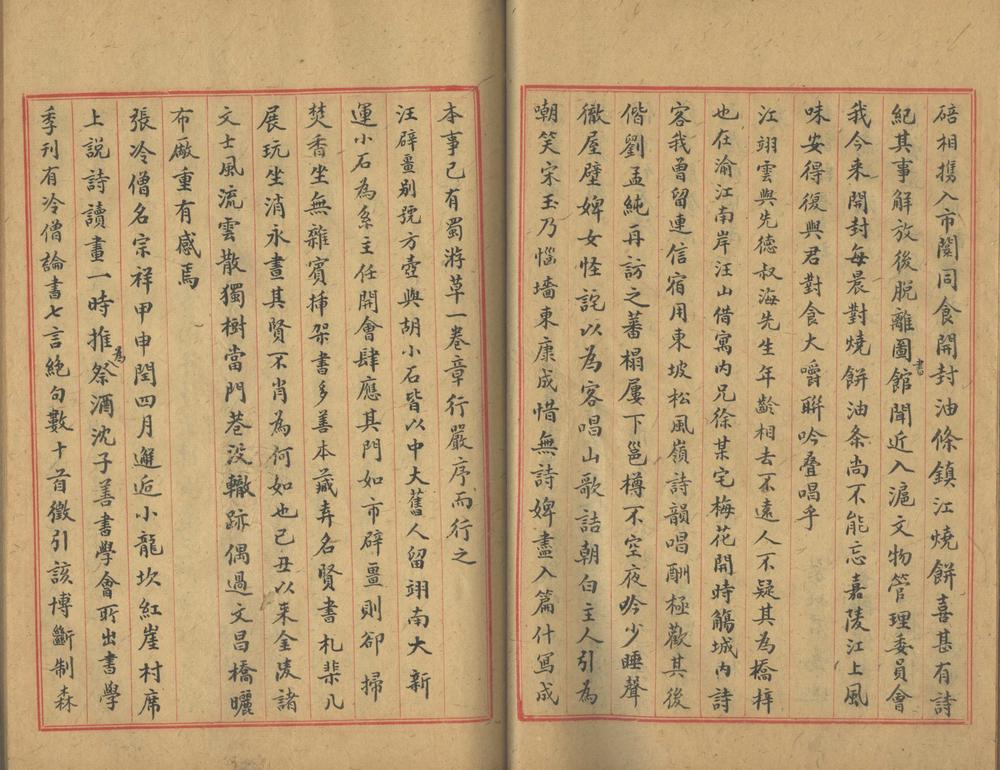 碚相携入市闤同食開封油條鎮江燒餅喜甚有詩
紀其事解放後脱離圖書館聞近入滬文物管理委員會
我今来開封每晨對燒餅油条尚不能忘嘉陵江上風
味安得復與君對食大嚼聨吟叠唱乎
江翊雲與先德叔海先生年齡相去不遠人不疑其為橋梓
也在渝江南岸汪山借寓内兄徐某宅梅花開時觴城内詩
客我曾留連信宿用東坡松風嶺詩韻唱酬極歡其後
偕劉孟純再訪之蕃榻屢下邕樽不空夜吟少睡聲
徹屋壁婢女怪詫以為客唱山歌詰朝白主人引為
嘲笑宋玉乃惱墙東康成惜無詩婢盡入篇什寫成
本事已有蜀游草一卷章行嚴序而行之
汪辟畺别號方壺與胡小石皆以中大舊人留翊南大新
運小石為系主任開會肆應其門如市辟畺則卻掃
焚香坐無雜賓揷架書多善本藏弆名賢書札棐几
展玩坐消永晝其賢不肖為何如也己丑以来金陵諸
文士風流雲散獨樹當門巷没轍跡偶過文昌橋曬
布廠重有感焉
張冷僧名宗祥甲申閏四月邂逅小龍坎紅崖村席
上説詩讀畫一時推為祭酒沈子善書學會所出書學
季刊有冷僧論書七言絶句數十首徵引該博斷制森